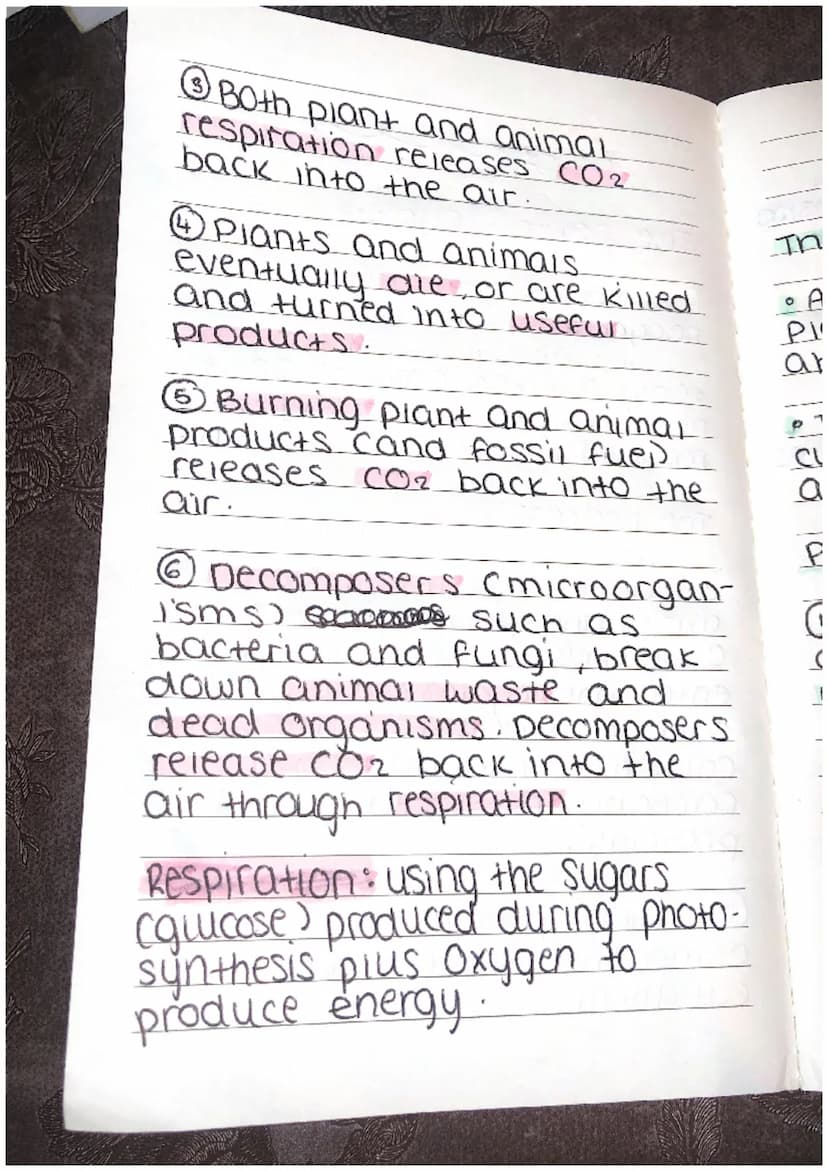 ③ Both plant and animal
respiration releases CO₂
back into the air.
④ Plants and animals
eventually die, or are killed
and turned into useful
products.
⑤ Burning plant and animal
products (and fossil fuel)
releases CO₂ back into the
air.
⑥ Decomposers (microorgan-
isms) such as
bacteria and fungi, break
down animal waste and
dead organisms. Decomposers
release CO₂ back into the
air through respiration.
Respiration: using the sugars
(glucose) produced during photo-
synthesis plus oxygen to
produce energy.
Th
• A
Pl
ar
cu
a
P